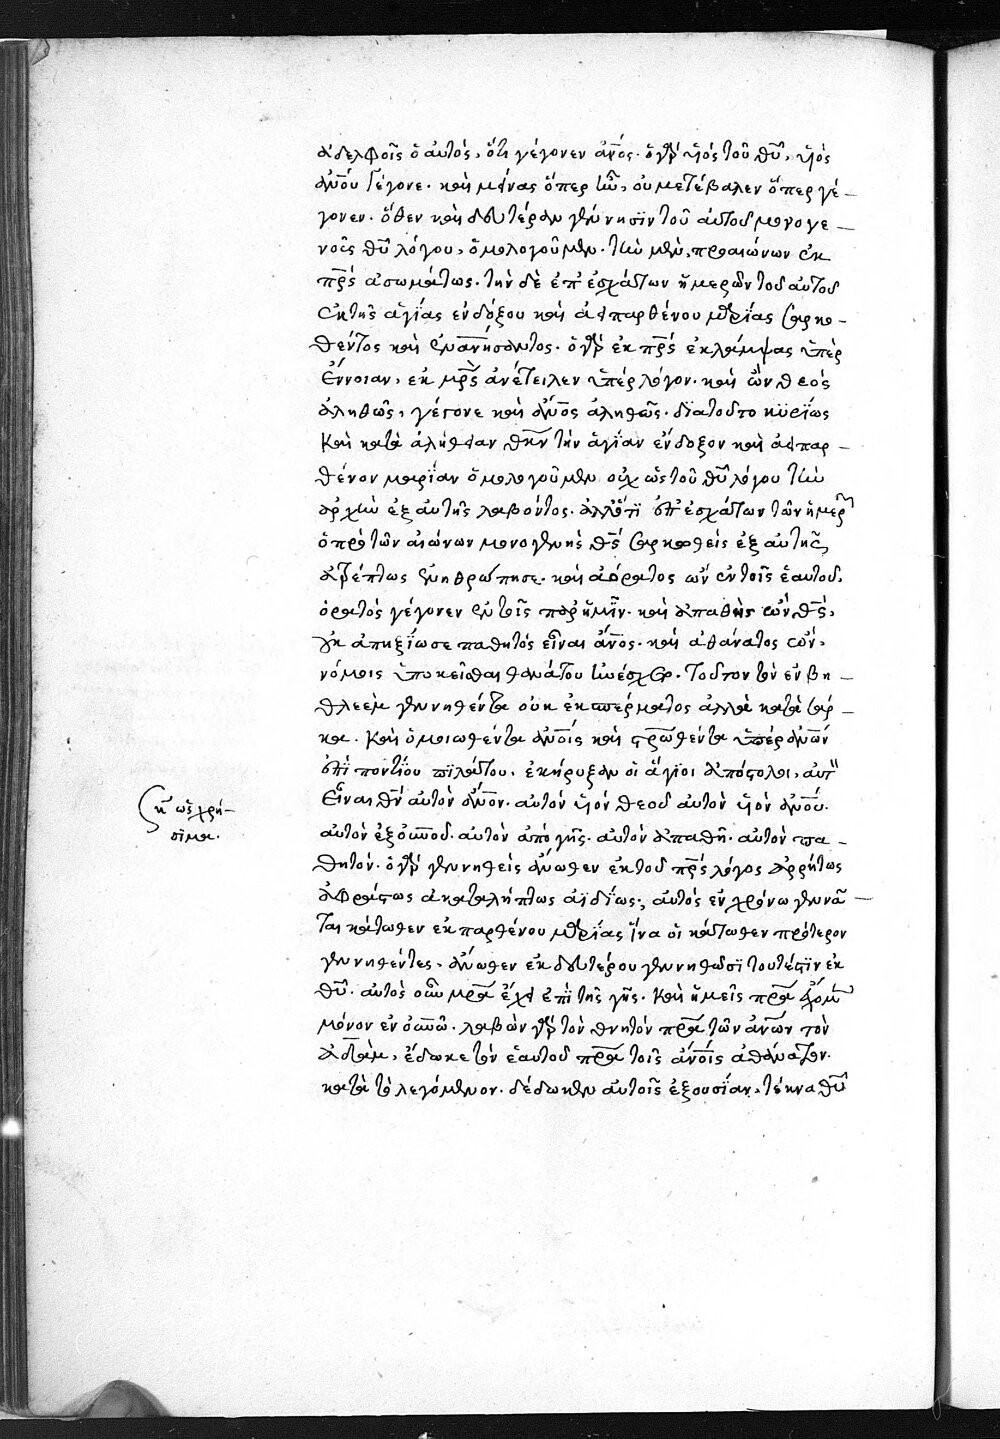 ἀδελφοῖς ὁ αὐτὸς, ὅτι γέγονεν ἄνος. ὁ γὰρ υἱὸς τοῦ θῦ, υἱὸς
ἀνοῦ γέγονε. καὶ μείνας ὅπερ ἦν, οὐ μετέβαλεν ὅπερ γέ-
γονεν. ὅθεν καὶ δευτέραν γέννησϊν τοῦ αὐτοῦ μονογε-
νοῦς θῦ λόγου, ὁμολογοῦμεν. τὴν μὲν, προαιώνων ἐκ
πρς ἀσωμάτως. τὴν δὲ ἐπ' ἐσχάτων ἡμερῶν τοῦ αὐτοῦ
ἐκ τῆς ἁγίας ἐνδόξου καὶ ἀειπαρθένου μαρίας σαρκω-
θέντος καὶ ἐνανήσαντος. ὁ γὰρ ἐκ πρς ἐκλάμψας ὑπὲρ
ἔννοιαν, ἐκ μρς ἀνέτειλεν ὑπὲρ λόγον. καὶ ὢν θεὸς
ἀληθῶς, γέγονε καὶ ἄνος ἀληθῶς. δϊατοῦτο κϋρίως
καὶ κατὰ ἀλήθειαν θκν τὴν ἁγίαν ἔνδοξον καὶ ἀειπαρ-
θένον μαρίαν ὁμολογοῦμεν οὐχ ὡς τοῦ θῦ λόγου τὴν
ἀρχὴν ἐξ αὐτῆς λαβόντος. ἀλλ' ὅτι ἐπ' ἐσχάτων τῶν ἡμερῶν
ὁ πρὸ τῶν αἰώνων μονογενὴς θς σαρκωθεὶς ἐξ αὐτῆς,
ἀτρέπτως ἐνηθρώπησε. καὶ ἀόρατος ὢν ἐν τοῖς ἑαυτοῦ,
ὁρατὸς γέγονεν ἐν τοῖς παρ' ἡμῖν. καὶ ἀπαθὴς ὢν θς,
οὐκ ἀπηξίωσε παθητὸς εἶναι ἄνος. καὶ ἀθάνατος ὢν,
νόμοις ὑποκεῖσθαι θανάτου ἠνέσχετο. τοῦτον τὸν ἐν βη-
θλεὲμ γεννηθέντα οὐκ ἐκ σπέρματος ἀλλὰ κατὰ σάρ-
κα. καὶ ὁμοιωθέντα ἀνοις καὶ στρωθέντα ὑπὲρ ἀνων
ἐπὶ ποντίου πϊλάτου. ἐκήρυξαν οἱ ἅγιοι ἀπόστολοι, αὐτὸν
εἶναι θν αὐτὸν ἄνον. αὐτὸν υἱὸν θεοῦ αὐτὸν υἱὸν ἀνοῦ.
αὐτὸν ἐξ οὐνοῦ. αὐτὸν ἀπὸ γῆς. αὐτὸν ἀπαθῆ. αὐτὸν πα-
θητόν. ὁ γὰρ γεννηθεὶς ἄνωθεν ἐκ τοῦ πρς λόγος ἀρρήτως
ἀφράστως ἀκαταλήπτως ἀϊδίως, αὐτὸς ἐν χρόνω γεννᾶ-
ται κάτωθεν ἐκ παρθένου μαρίας ἵνα οἱ κάτωθεν πρότερον
γεννηθέντες, ἄνωθεν ἐκ δευτέρου γεννηθῶσϊ τουτέστϊν ἐκ
θῦ. αὐτὸς οὖν μρα ἔχει ἐπὶ τῆς γῆς. καὶ ἡμεῖς πρα ἔχομεν
μόνον ἐν οὐνῶ. λαβὼν γὰρ τὸν θνητὸν πρα τῶν ἀνων τὸν
ἀδὰμ, ἔδωκε τὸν ἑαυτοῦ πρα τοῖς ἀνοις ἀθάνατον.
κατὰ τὸ λεγόμενον. δέδωκεν αὐτοῖς ἐξουσίαν, τέκνα θῦ
χρή-
σιμα.